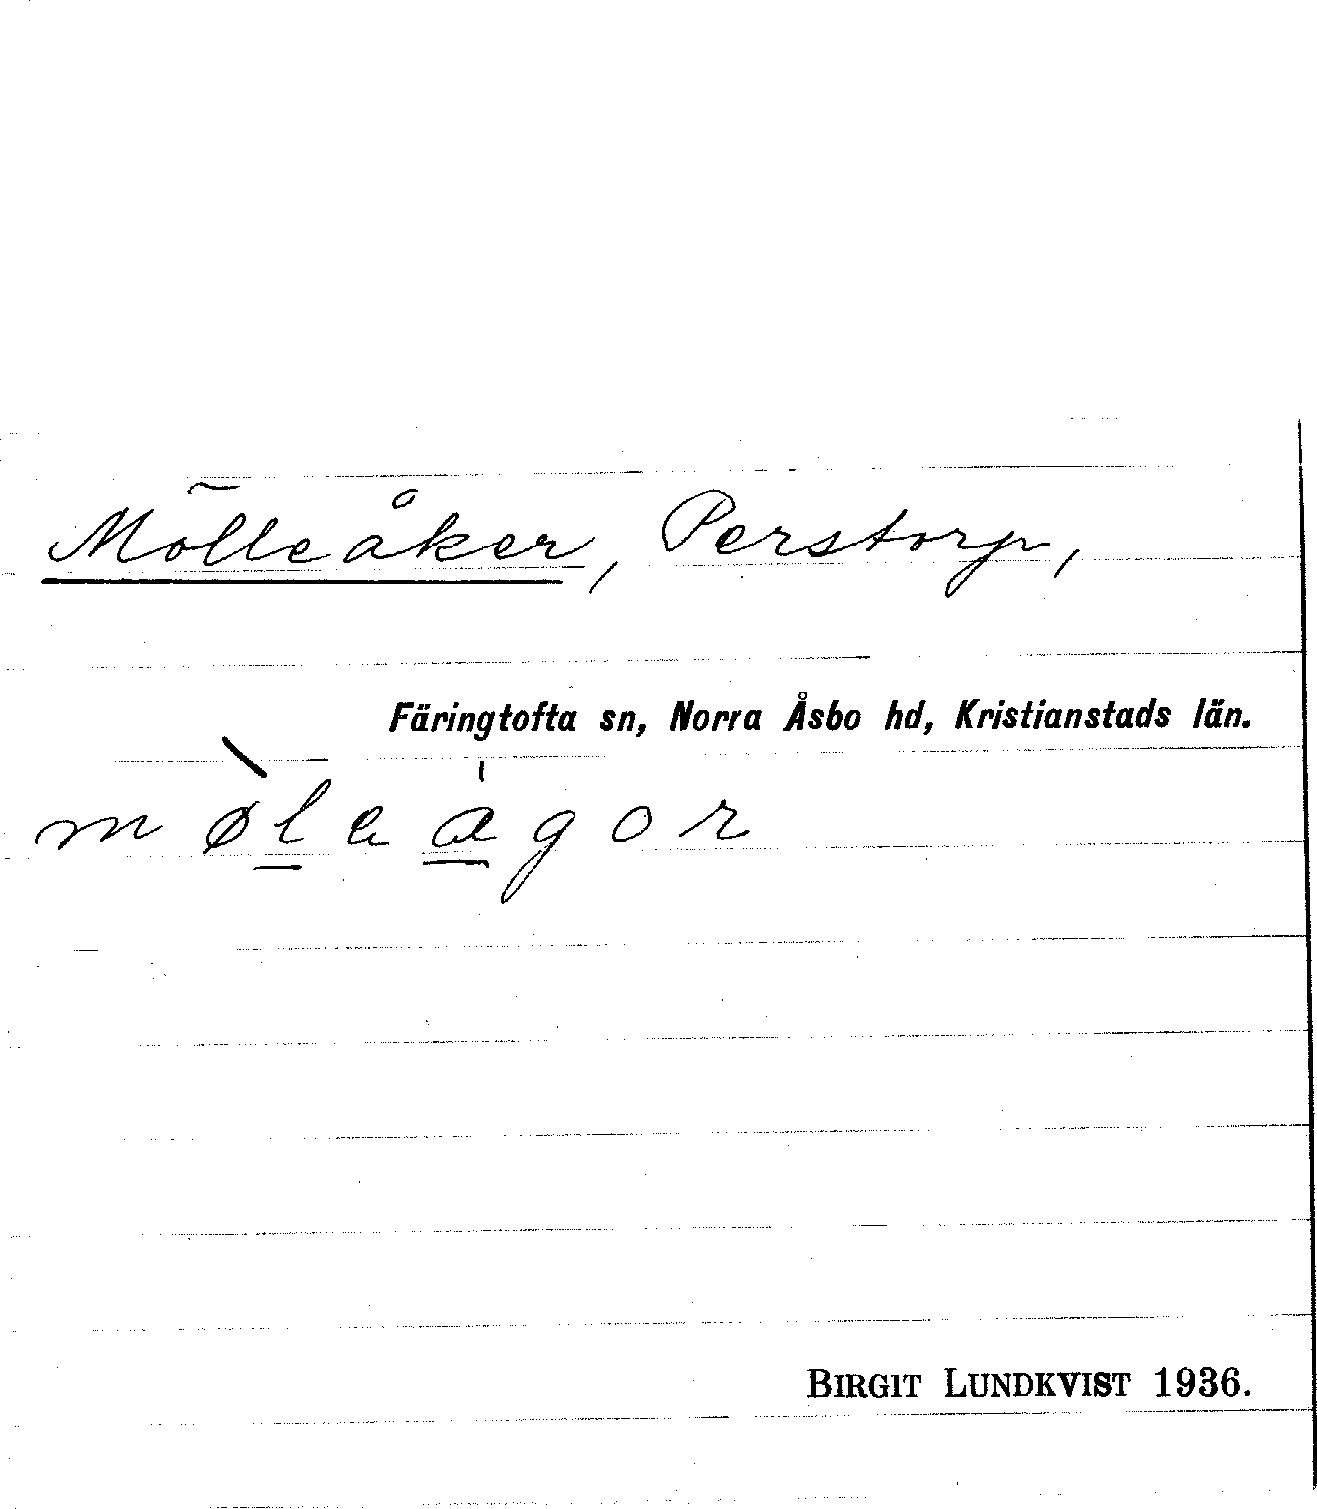 Mölleåker, Perstorp,
Färingtofta sn, Norra Åsbo hd, Kristianstads län.
m ø̀l e a̍ g o r
BIRGIT LUNDKVIST 1936.